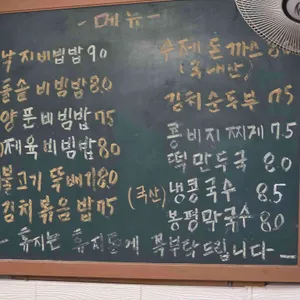 - 메뉴 -
낙지비빔밥 90
돌솥비빔밥 80
양푼비빔밥 75
제육비빔밥 80
불고기뚝배기 80
김치볶음밥 75
수제돈까스 80
(국내산)
김치순두부 75
콩비지찌게 7.5
떡만두국 80
(국산) 냉콩국수 8.5
봉평막국수 8.0
- 휴지는 휴지통에 꼭 부탁드립니다 -